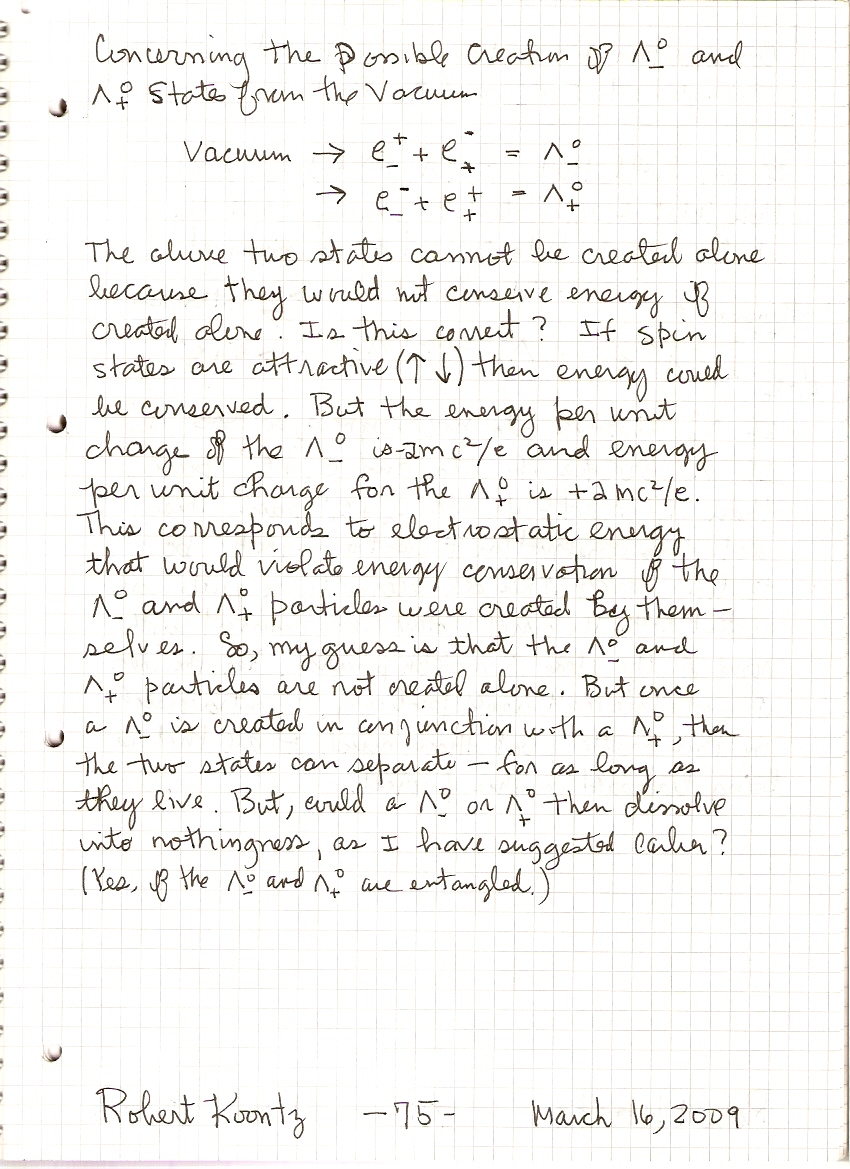 Concerning the Possible Creation of Λ₋⁰ and
Λ₊⁰ States from the Vacuum
Vacuum → e₋⁺ + e₊⁻ = Λ₋⁰
→ e₋⁻ + e₊⁺ = Λ₊⁰
The above two states cannot be created alone
because they would not conserve energy if
created alone. Is this correct? If spin
states are attractive (↑ ↓) then energy could
be conserved. But the energy per unit
charge of the Λ₋⁰ is -2mc²/e and energy
per unit charge for the Λ₊⁰ is +2mc²/e.
This corresponds to electrostatic energy
that would violate energy conservation if the
Λ₋⁰ and Λ₊⁰ particles were created by them-
selves. So, my guess is that the Λ₋⁰ and
Λ₊⁰ particles are not created alone. But once
a Λ₋⁰ is created in conjunction with a Λ₊⁰, then
the two states can separate – for as long as
they live. But, could a Λ₋⁰ or Λ₊⁰ then dissolve
into nothingness, as I have suggested earlier?
(Yes, if the Λ₋⁰ and Λ₊⁰ are entangled.)
Robert Koontz -75- March 16, 2009